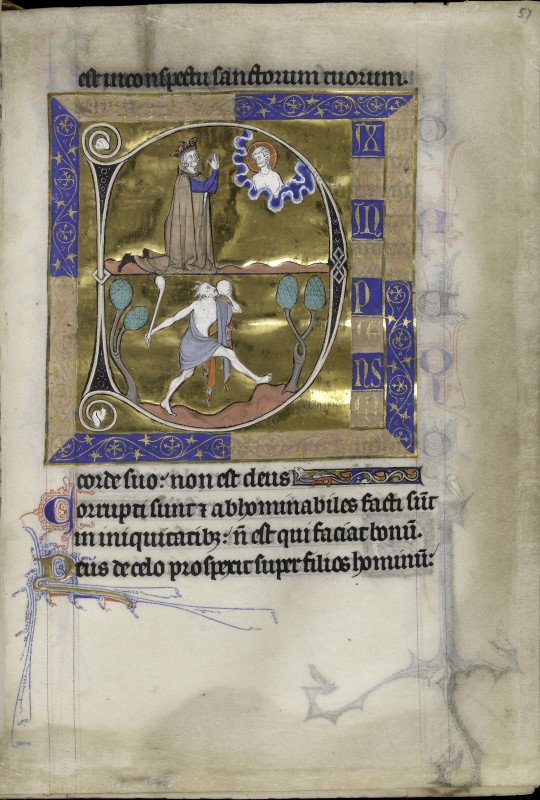 57
est in conspectu sanctorum tuorum.
D IX
IN
P
NS
corde suo: non est deus
Corrupti sunt ⁊ abhominabiles facti sūt
in iniquitatibꝫ: n̄ est qui faciat bonū.
Deus de celo prospexit super filios hominū: